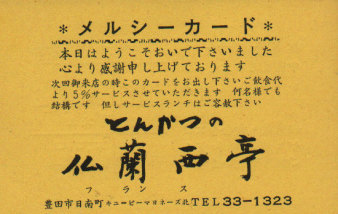 ＊メルシーカード＊
本日はようこそおいで下さいました
心より感謝申し上げております
次回御来店の時このカードをお出し下さいご飲食代
より5％サービスさせていただきます 何名様でも
結構です 但しサービスランチはご容赦下さい
とんかつの
仏蘭西亭
フランス
豊田市日南町キューピーマヨネーズ北TEL33-1323